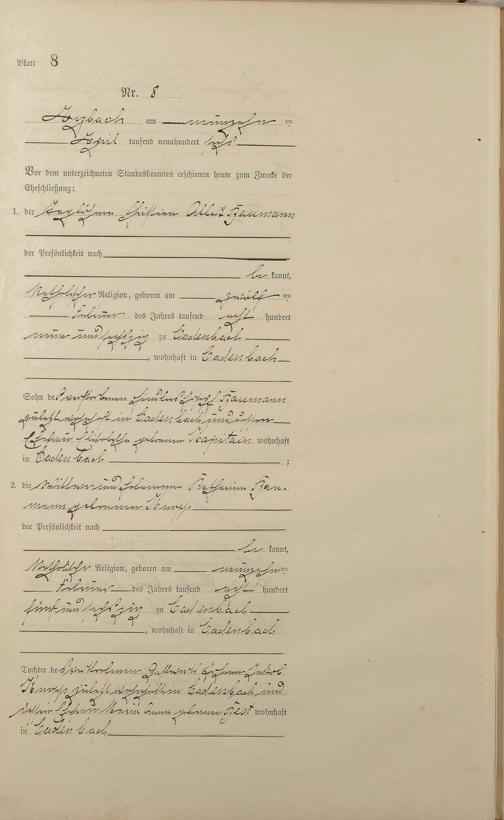 Blatt 8
Nr. 8
am neunzehn ten
April tausend neunhundert sechs
Vor dem unterzeichneten Standesbeamten erschienen heute zum Zwecke der
Eheschließung:
1. der Christian Albert Baumann
der Persönlichkeit nach
be kannt,
katholischer Religion, geboren am zwölf ten
Februar des Jahres tausend acht hundert
neun und sechzig zu Cadenbach
, wohnhaft in Cadenbach
Sohn des verstorbenen Baumann
zuletzt wohnhaft in Cadenbach und dessen
Ehefrau geborenen Kapitain wohnhaft
in Cadenbach ;
2. die Katharina Bau-
mann geborenen
der Persönlichkeit nach
be kannt,
katholischer Religion, geboren am neunzehn ten
Februar des Jahres tausend acht hundert
fünf und sechszig zu Cadenbach
, wohnhaft in Cadenbach
Tochter des verstorbenen Jakob
zuletzt wohnhaft in Cadenbach und
dessen Ehefrau Maria Anna geborenen wohnhaft
in Cadenbach